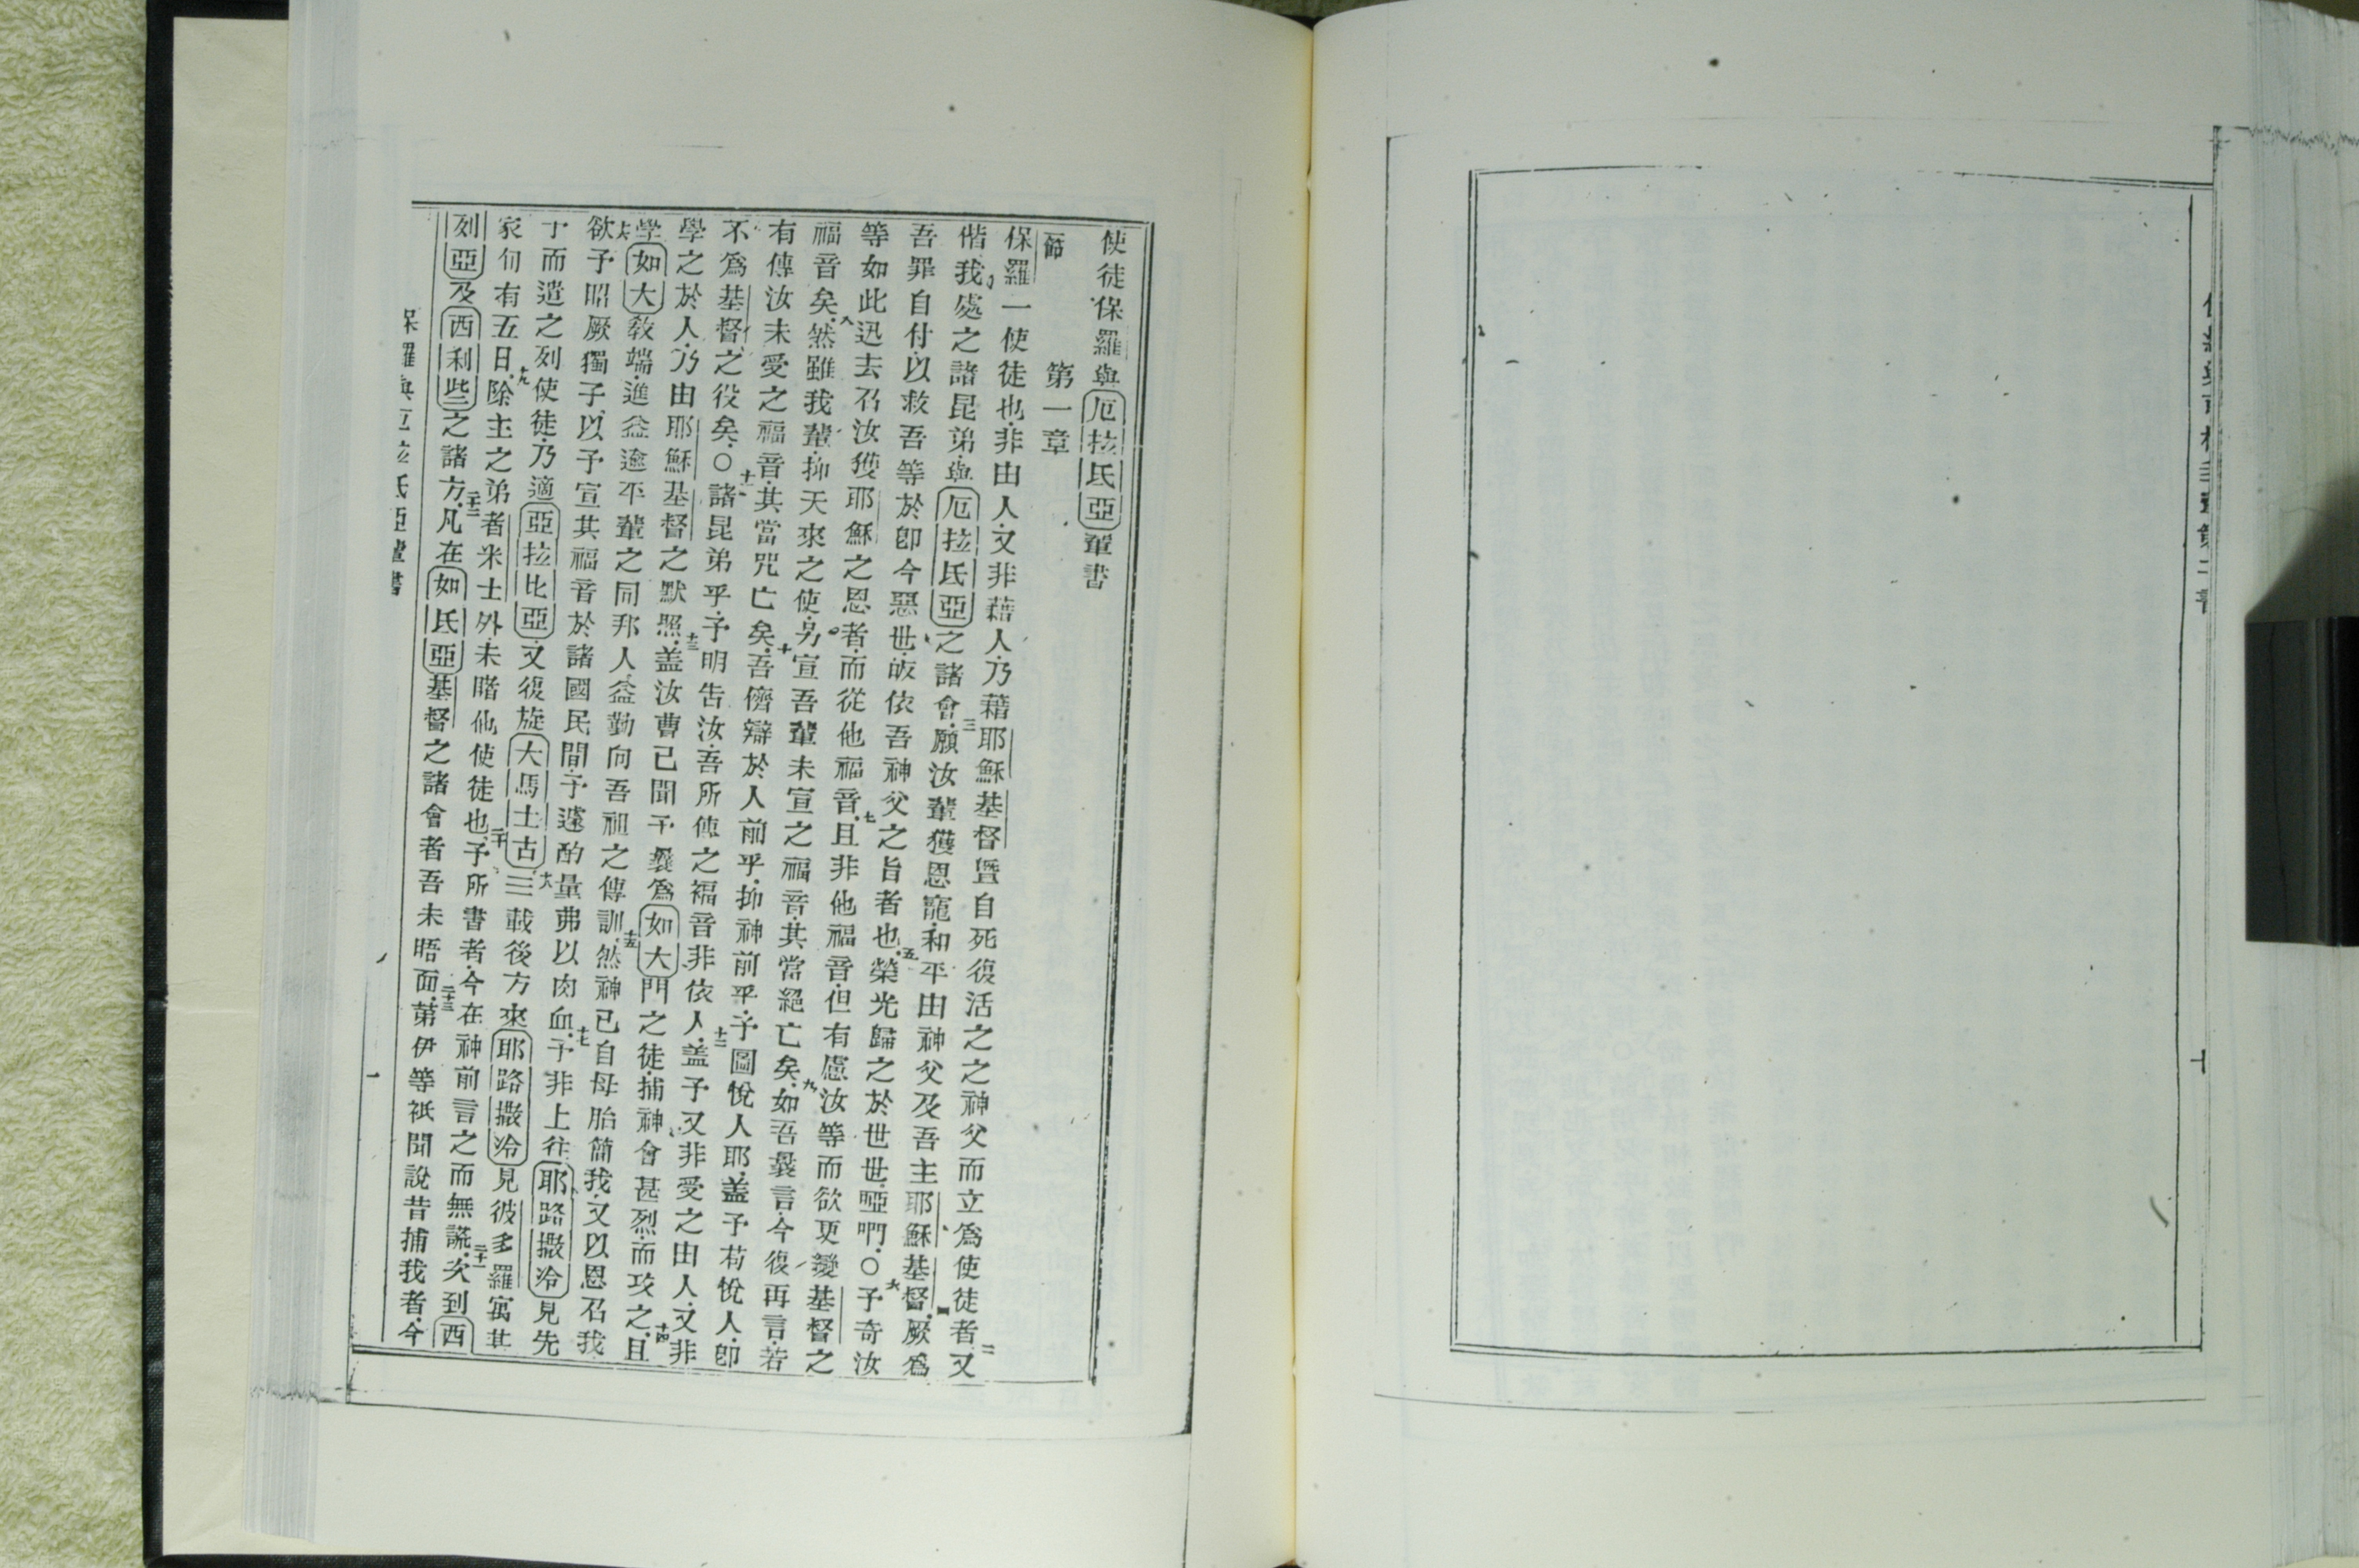 使徒保羅與厄拉氏亞輩書
第一章
一節
保羅一使徒也非由人又非藉人乃藉耶穌基督曁自死復活之之神父而立爲使徒者二又
偕我處之諸昆弟與厄拉氏亞之諸會三願汝輩獲恩寵和平由神父及吾主耶穌基督四厥爲
吾罪自付以救吾等於卽今惡世皈依吾神父之旨者也五榮光歸之於世世啞們〇六予奇汝
等如此迅去召汝獲耶穌之恩者而從他福音七且非他福音但有慮汝等而欲更變基督之
福音矣八然雖我輩抑天來之使另宣吾輩未宣之福音其當絕亡矣九如吾曩言今復再言若
有傳汝未受之福音其當咒亡矣十吾儕辯於人前乎抑神前乎予圖悅人耶蓋予茍悅人卽
不爲基督之役矣〇十一諸昆弟乎予明告汝吾所傳之福音非依人十二蓋予又非受之由人又非
學之於人乃由耶穌基督之默照十三蓋汝曹已聞予曩爲如大門之徒捕神會甚烈而攻之十四且
學如大敎端進益逾平輩之同邦人益勤向吾祖之傳訓十五然神已自母胎簡我又以恩召我
十六欲予昭厥獨子以予宣其福音於諸國民間予遽酌量弗以肉血十七予非上往耶路撒冷見先
于而遣之列使徒乃適亞拉比亞又復旋大馬士古十八三載後方來耶路撒冷見彼多羅寓其
家旬有五日十九除主之弟者米士外未睹他使徒也二十予所書者今在神前言之而無謊二十一次到西
列亞及西利些之諸方二十二凡在如氏亞基督之諸會者吾未晤面二十三第伊等祇聞說昔捕我者今
保羅與厄拉氏亞輩書
一
十